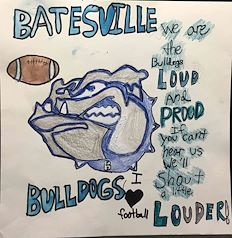 BATESVILLE
We are
the
Bulldogs
LOUD
and
PROUD
If you can't
hear us
we'll
Shout
a little
LOUDER!
BULLDOGS
I
football